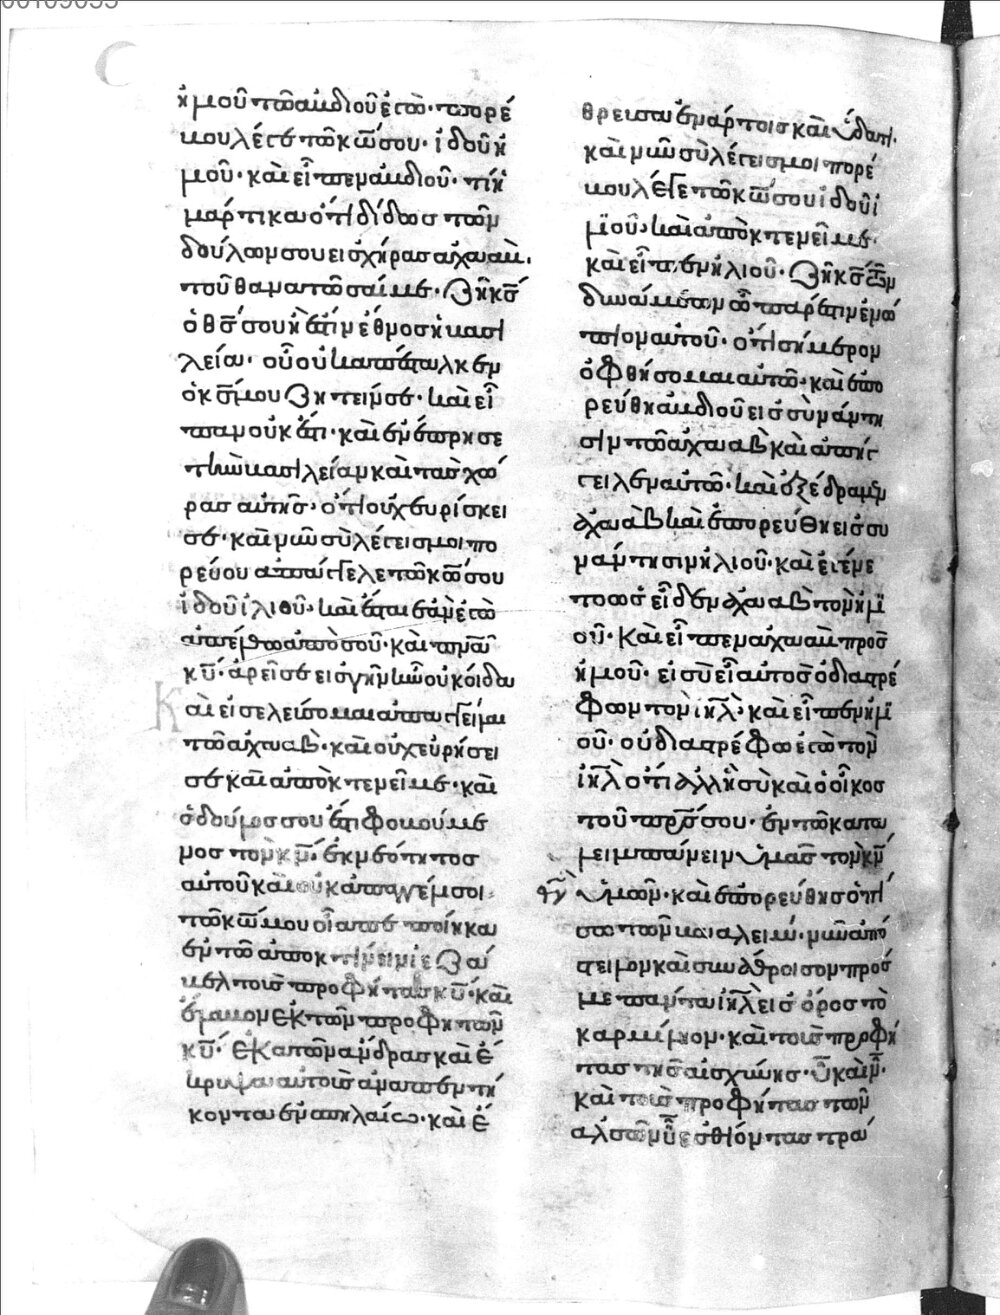 ἠμοῦ τῶ ἀβδιοῦ ἐγώ· πορέ
βου λέγε τῶ κῶ σου· ἰδοῦ ἠ
μοῦ· καὶ εἶπεν ἀβδιοῦ· τί ἡ
μάρτηκα ὅτι δίδως τὸν
δοῦλον σου εἰς χεῖρας ἀχαάβ·
τοῦ θανατῶσαί με· ζῆ κς
ὁ θς σου εἰ ἔστιν ἔθνος ἢ βασι
λεία· οὗ οὐκ ἀπέσταλκεν
ὁ κς μου ζητεῖν σε· καὶ εἶ
πον οὐκ ἔστι· καὶ ἐνέπρησε
τὴν βασιλείαν καὶ τὰς χώ
ρας αὐτῆς· ὅτι οὐχ εὑρίσκει
σε· καὶ νῦν σὺ λέγεις μοι πο
ρεύου ἀπάγγελε τῶ κῶ σου
ἰδοῦ ἠλιοῦ· καὶ ἔσται ἐὰν ἐγὼ
ἀπέλθω ἀπὸ σοῦ· καὶ πνα
κυ· ἀρεῖ σε εἰς γῆν ἣν οὐκ οἶδα
Καὶ εἰσελεύσομαι ἀπαγγεῖλαι
τῶ ἀχαάβ· καὶ οὐχ εὑρήσει
σε καὶ ἀποκτενεῖ με· καὶ
ὁ δοῦλος σου ἐστὶ φοβούμε
νος τὸν κν· ἐκ νεότητος
αὐτοῦ καὶ οὐκ ἀπαγγέλη σοι
τῶ κῶ μου οἷα πεποίηκα
ἐν τῶ ἀποκτεῖναι ἰεζά
βελ τοὺς προφήτας κυ· καὶ
ἔκρυψα ἐκ τῶν προφητῶν
κυ· ἑκατὸν ἄνδρας καὶ ἔ
κρυψα αὐτοὺς ἀνὰ πεντή
κοντα ἐν σπηλαίω· καὶ ἔ
θρεψα ἐν ἄρτοις καὶ ὕδατι·
καὶ νῦν σὺ λέγεις μοι πορέ
βου λέγε τῶ κῶ σου ἰδοῦ ἠ
λιοῦ· καὶ ἀποκτενεῖ με·
καὶ εἶπεν ἠλιοῦ· ζῆ κς τῶν
δυνάμεων ὧ παρέστην ἐνώ
πιον αὐτοῦ· ὅτι σήμερον
ὀφθήσομαι αὐτῶ· καὶ ἐπο
ρεύθη ἀβδιοῦ εἰς συνάντη
σιν τῶ ἀχαὰβ καὶ ἀπήγ
γειλεν αὐτῶ· καὶ ἐξέδραμεν
ἀχαὰβ καὶ ἐπορεύθη εἰς συ
νάντησιν ἠλιοῦ· καὶ ἐγένε
το ὡς εἶδεν ἀχαὰβ τὸν ἠλι
οῦ· Καὶ εἶπεν ἀχαὰβ πρὸς
ἠλιοῦ· εἰ σὺ εἶ αὐτὸς ὁ διαστρέ
φων τὸν ιηλ· καὶ εἶπεν ἠλι
οῦ· οὐ διαστρέφω ἐγὼ τὸν
ιηλ ὅτι ἀλλ' ἢ σὺ καὶ ὁ οἶκος
τοῦ πρς σου· ἐν τῶ κατα
λιμπάνειν ὑμᾶς τὸν κν
θν ὑμῶν· καὶ ἐπορεύθης ὀπί
σω τῶν βααλείμ· νῦν ἀπό
στειλον καὶ συνάθροισον πρός
με πάντα ιηλ εἰς ὄρος τὸ
καρμήλιον· καὶ τοὺς προφή
τας τῆς αἰσχύνης· υ καὶ ν·
καὶ τοὺς προφήτας τῶν
ἀλσῶν υ ἐσθίοντας τρά